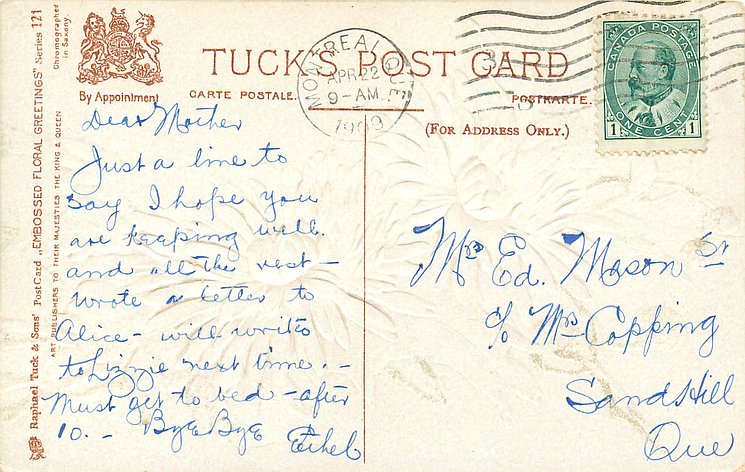 TUCK'S POST CARD
By Appointment
CARTE POSTALE.
POSTKARTE.
(FOR ADDRESS ONLY.)
MONTREAL QUE
APR 22
9-AM
1909
CANADA POSTAGE
1 ONE CENT 1
Raphael Tuck & Sons' Post Card „EMBOSSED FLORAL GREETINGS" Series 121
ART PUBLISHERS TO THEIR MAJESTIES THE KING & QUEEN
Chromographed
in Saxony
Dear Mother
Just a line to
say I hope you
are keeping well.
and all the rest –
wrote a letter to
Alice – will write
to Lizzie next time. –
Must get to bed – after
10. – Bye Bye
Ethel
Mrs Ed. Mason Sr
c/o Mrs Copping
Sandhill
Que